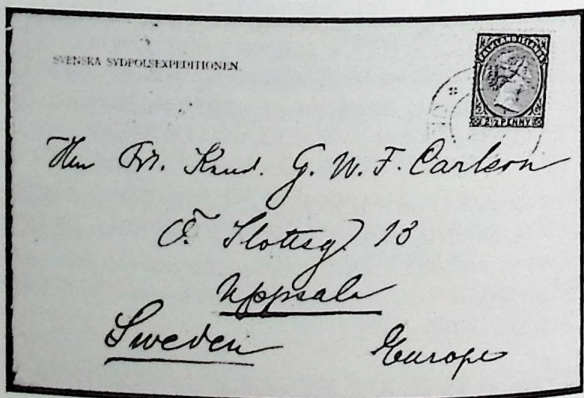 SVENSKA SYDPOLSEXPEDITIONEN.
2½ PENNY
Herr Fil. Kand. G. W. F. Carlson
Ö. Slottsg 13
Uppsala
Sweden Europe